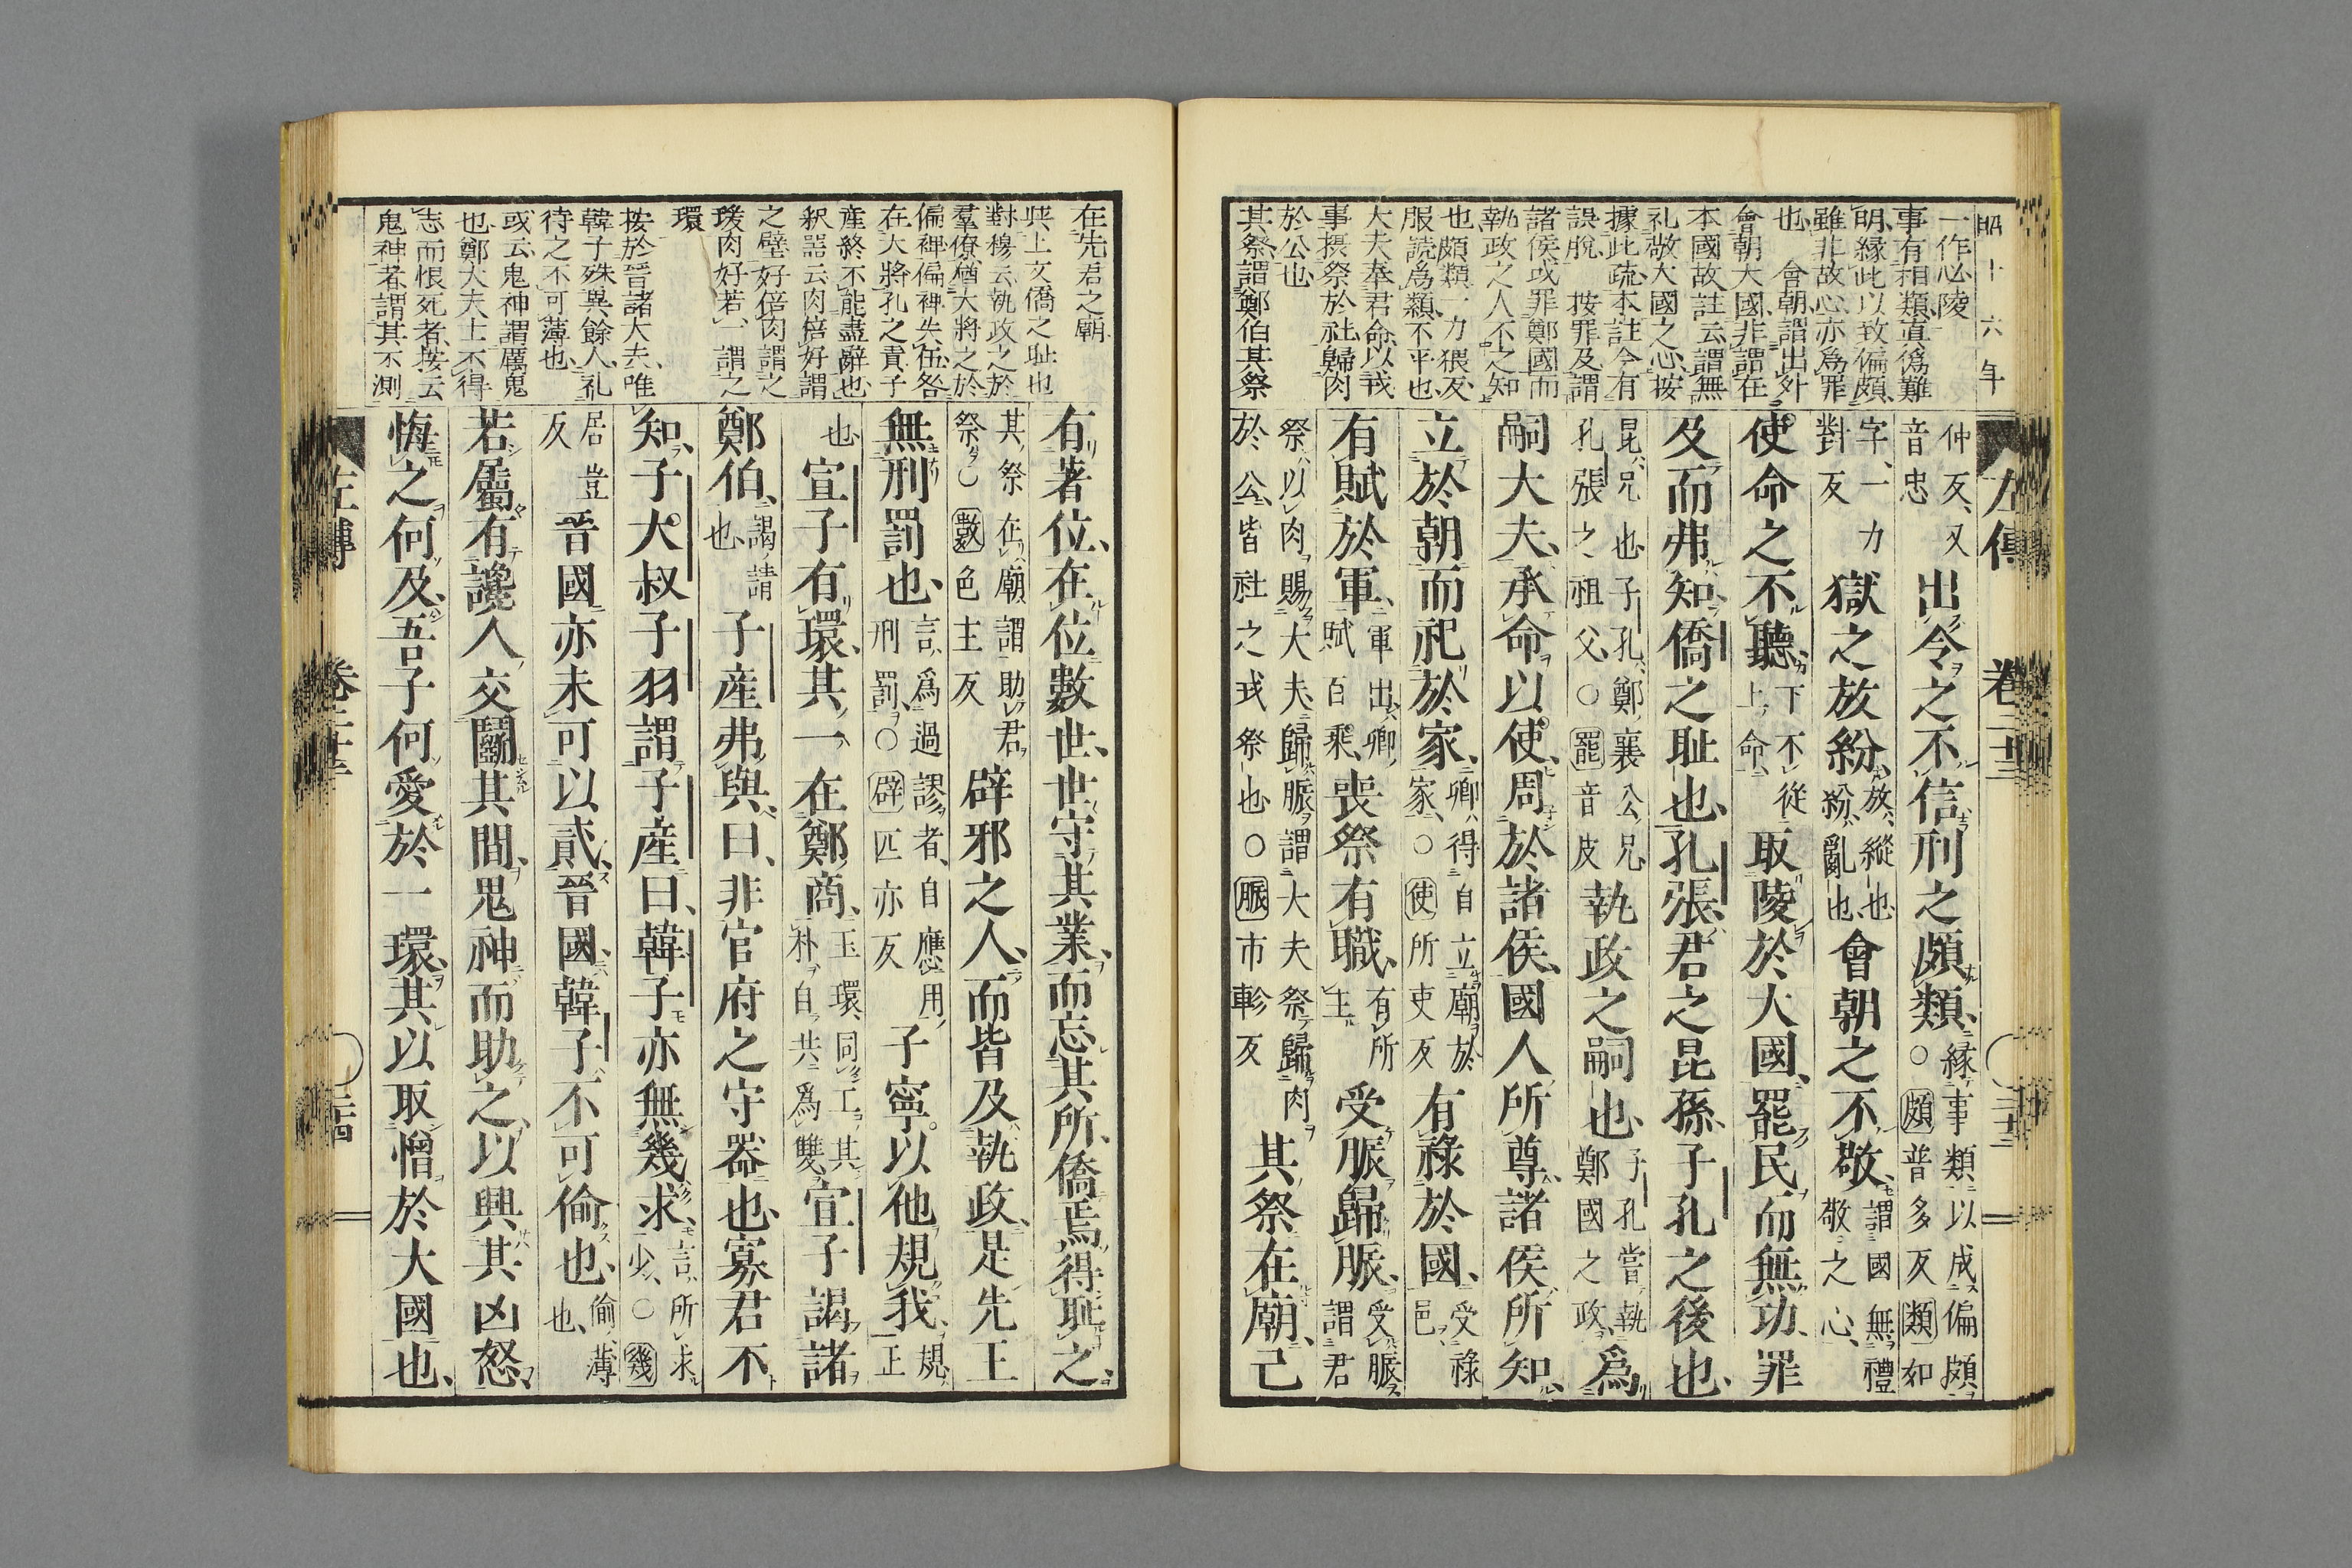 昭十六年
一作必陵
事有相類真偽難
明縁此以致偏頗
雖非故心亦爲罪
也 會朝謂出外
會朝大國非謂在
本國故註云謂無
礼敬大國之心按
據此疏本註今有
誤脫 按罪及謂
諸侯或罪鄭國而
執政之人不之知
也頗類一力猥反
服読爲類不平也
大夫奉君命以我
事摂祭於社歸肉
於公也
其祭謂鄭伯其祭
左傳 卷二十三
仲反又
音忠
出令之不信刑之頗類
縁事類以成偏頗
○頗普多反類如
字一力
對反
獄之放紛
放縱也
紛亂也
會朝之不敬
謂國無禮
敬之心
使命之不聽
下不從
上命
取陵於大國罷民而無功罪
及而弗知僑之耻也孔張君之昆孫子孔之後也
昆兄也子孔鄭襄公兄
孔張之祖父○罷音皮
執政之嗣也
子孔嘗執
鄭國之政
爲
嗣大夫承命以使周於諸侯國人所尊諸侯所知
立於朝而祀於家
卿得自立廟於
家○使所吏反
有祿於國
受祿
邑
有賦於軍
軍出卿
賦百乘
喪祭有職
有所
主
受脤歸脤
受脤
謂君
祭以肉賜大夫歸脤謂大夫祭歸肉
於公皆社之戎祭也○脤市軫反
其祭在廟己
在先君之廟
與上文僑之耻也
對穆云執政之於
羣僚猶大將之於
偏裨偏裨失伍咎
在大將孔之責子
産終不能盡辭也
釈器云肉倍好謂
之璧好倍肉謂之
瑗肉好若一謂之
環
按於晉諸大夫唯
韓子殊異餘人礼
待之不可薄也
或云鬼神謂厲鬼
也鄭大夫上不得
志而恨死者按云
鬼神者謂其不測
有著位在位數世世守其業而忘其所僑焉得耻之
其祭在廟謂助君
祭○數色主反
辟邪之人而皆及執政是先王
無刑罰也
言爲過謬者自應用
刑罰○辟匹亦反
子寧以他規我
規
正
也
宣子有環其一在鄭商
玉環同工其
朴自共爲雙
宣子謁諸
鄭伯
謁請
也
子産弗與曰非官府之守器也寡君不
知子大叔子羽謂子産曰韓子亦無幾求
言所求
少○幾
居豈
反
晉國亦未可以貳晉國韓子不可偷也
偷薄
也
若屬有讒人交鬭其間鬼神而助之以興其凶怒
悔之何及吾子何愛於一環其以取憎於大國也
左傳 卷二十三